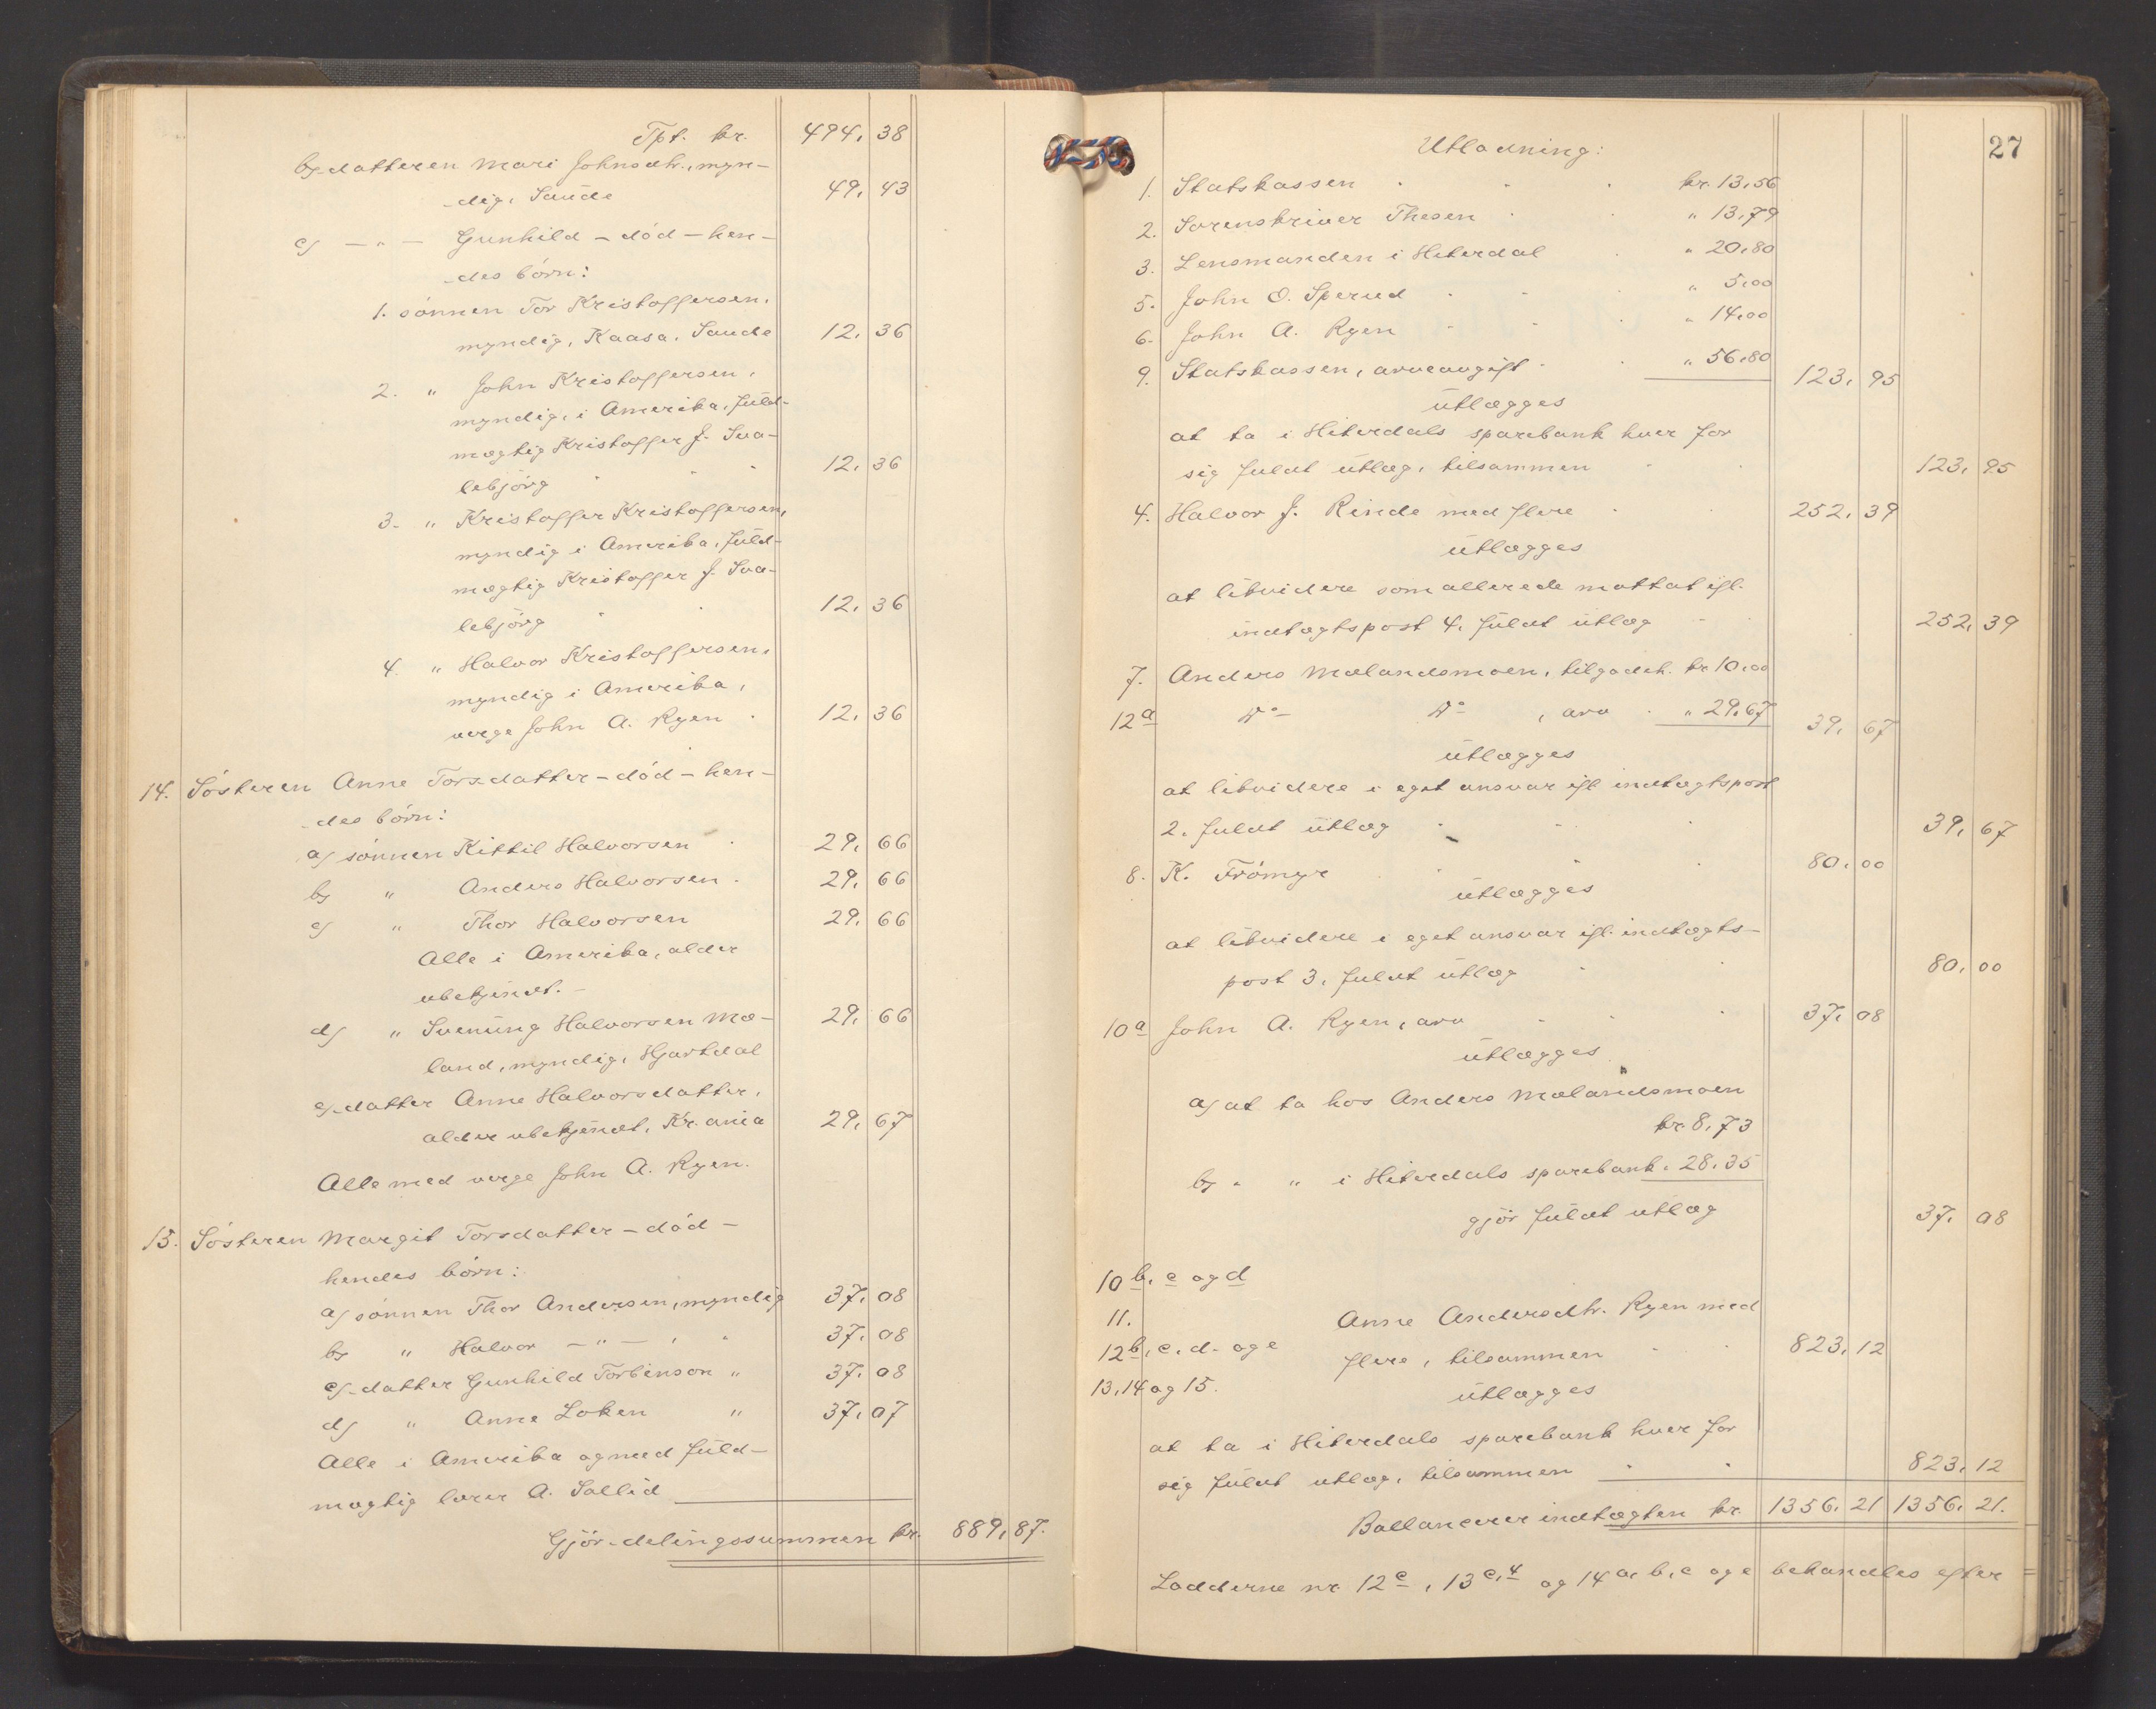 Tpt. kr. 494, 38
b) datteren Mari Johnsdtr., myn-
dig, Saude 49, 43
c) — " — Gunhild – død – hen-
des børn:
1. sønnen Tor Kristoffersen,
myndig, Kaasa, Saude 12, 36
2. " John Kristoffersen,
myndig, i Amerika, fuld-
mægtig Kristoffer J. Sva-
lebjørg " " " 12, 36
3. " Kristoffer Kristoffersen,
myndig i Amerika, fuld-
mægtig Kristoffer J. Sva-
lebjørg " " 12, 36
4. " Halvor Kristoffersen,
myndig i Amerika,
verge John A. Ryen . 12, 36
14. Søsteren Anne Torsdatter – død – hen-
des børn:
a) sønnen Kittil Halvorsen . 29, 66
b) " Anders Halvorsen . 29, 66
c) " Thor Halvorsen 29, 66
Alle i Amerika, alder
ubekjendt. –
d) " Svenung Halvorsen Mæ- 29, 66
land, myndig, Hjartdal
e) datter Anne Halvorsdatter,
alder ubekjendt, Kr.ania 29, 67
Alle med verge John A. Ryen.
15. Søsteren Margit Torsdatter – død –
hendes børn:
a) sønnen Thor Andersen, myndig 37, 08
b) " Halvor — " — , " 37, 08
c) datter Gunhild Torbinson " 37, 08
d) " Anne Loken " 37, 07
Alle i Amerika og med fuld-
mægtig lærer A. Sallid
Gjør delingssummen kr. 889, 87.
27
Utlodning:
1. Statskassen . . . kr. 13,56
2. Sorenskriver Thesen . . " 13,79
3. Lensmanden i Hiterdal . " 20,80
5. John O. Sperud . . . " 5,00
6. John A. Ryen . . . " 14,00
9. Statskassen, arveavgift . . " 56,80 123, 95
utlægges
at ta i Hiterdals sparebank hver for
sig fuldt utlæg, tilsammen . . 123, 95
4. Halvor J. Rinde med flere . . 252, 39
utlægges
at likvidere som allerede mottat ifl.
indtægtspost 4, fuldt utlæg . . 252, 39
7. Anders Mælandsmoen, tilgodeh. kr 10,00
12a Do Do , arv . " 29,67 39, 67
utlægges
at likvidere i eget ansvar ifl. indtægtspost
2, fuldt utlæg . . . 39, 67
8. K. Frömyr . . . 80, 00
utlægges
at likvidere i eget ansvar ifl. indtægts-
post 3, fuldt utlæg . . 80, 00
10a John A. Ryen, arv . . . 37, 08
utlægges
a) at ta hos Anders Mælandsmoen
kr. 8,73
b) " " i Hiterdals sparebank " 28,35
gjør fuldt utlæg 37, 08
10 b, c og d
11. Anne Andersdtr. Ryen med
12 b, c, d og e flere, tilsammen . . 823, 12
13, 14 og 15. utlægges
at ta i Hiterdals sparebank hver for
sig fuldt utlæg, tilsammen . . 823, 12
Ballancerer indtægten kr. 1356, 21 1356, 21.
Lodderne nr. 12 c, 13 c, 4 og 14 a, b, c og e behandles efter